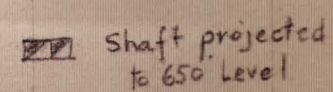 Shaft projected
to 650 Level